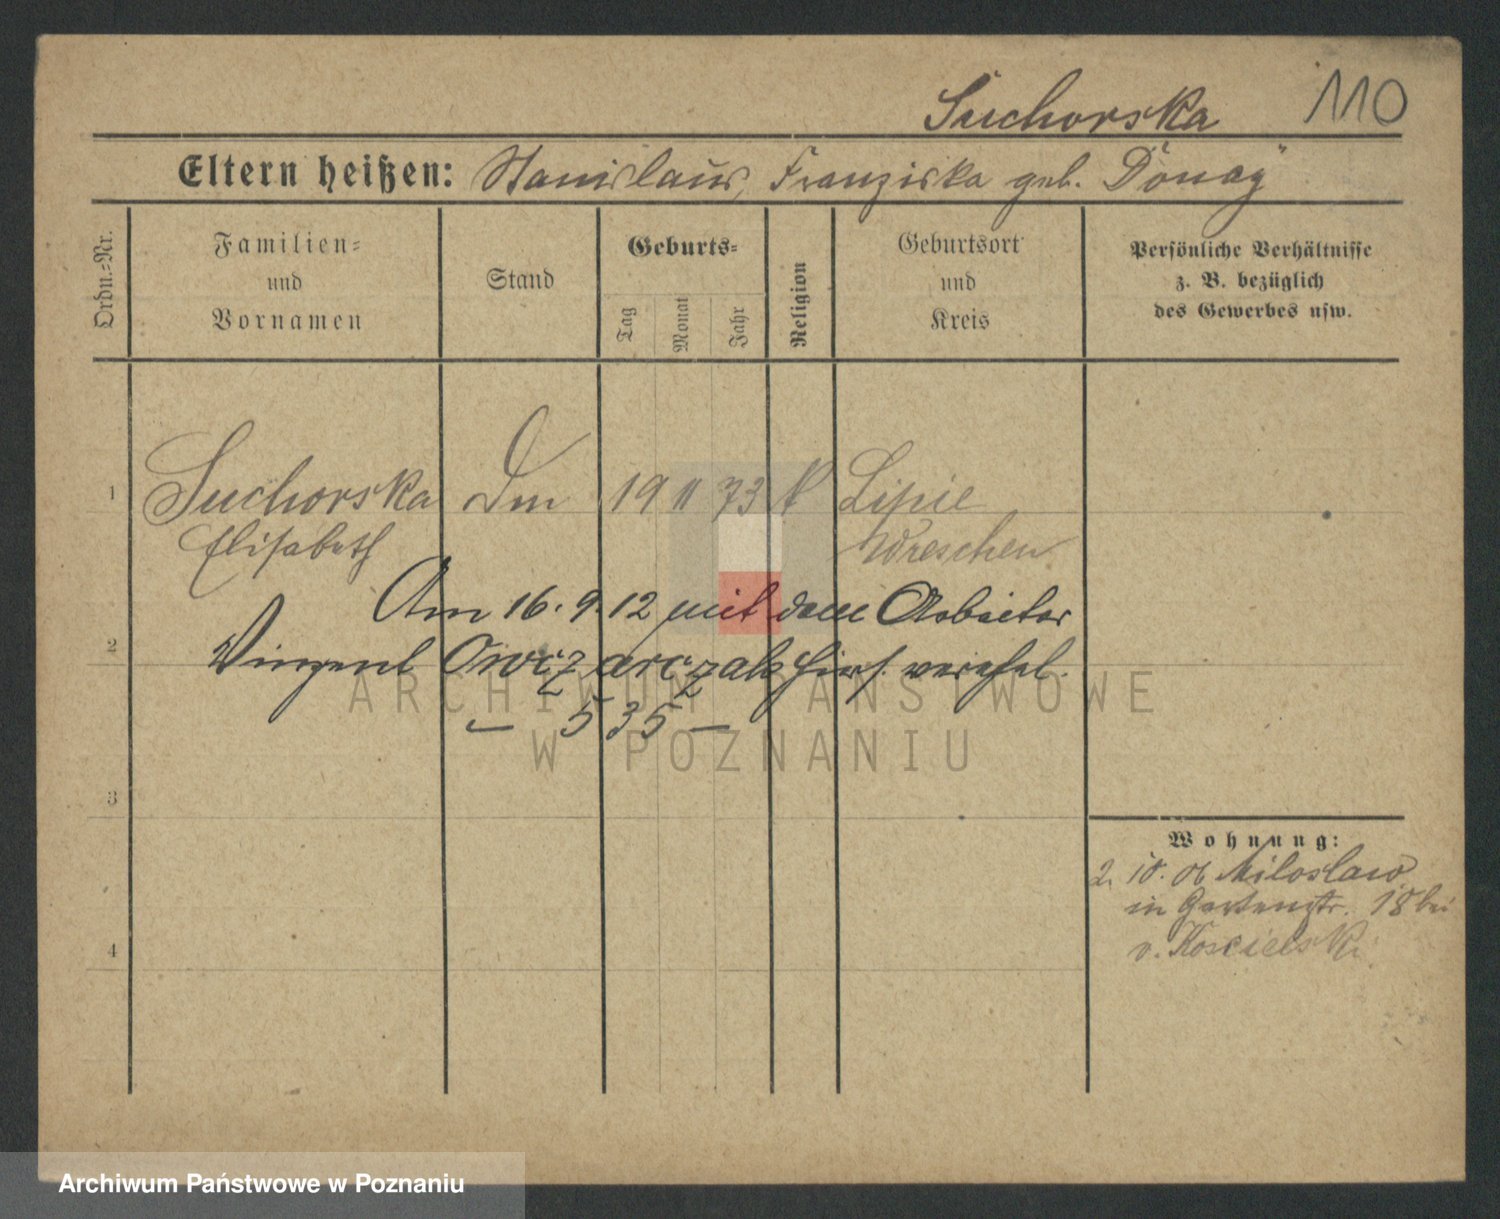 Suchorska 110
Eltern heißen: Stanislaus, Franziska geb. Donay
Ordn.=Nr.
Familien=
und
Vornamen
Stand
Geburts=
Tag
Monat
Jahr
Religion
Geburtsort
und
Kreis
Persönliche Verhältnisse
z. B. bezüglich
des Gewerbes usw.
1 Suchorska 19 11 73 k Lipie
Elisabeth Wreschen
Am 16. 9. 12 mit dem Arbeiter
2 Vinzent Owczarczak hier verehel.
— 535 —
3
Wohnung:
2. 10. 06 Miloslaw
in Gartenstr. 18 bei
v. Koscielski
4
ARCHIWUM PAŃSTWOWE
W POZNANIU
Archiwum Państwowe w Poznaniu